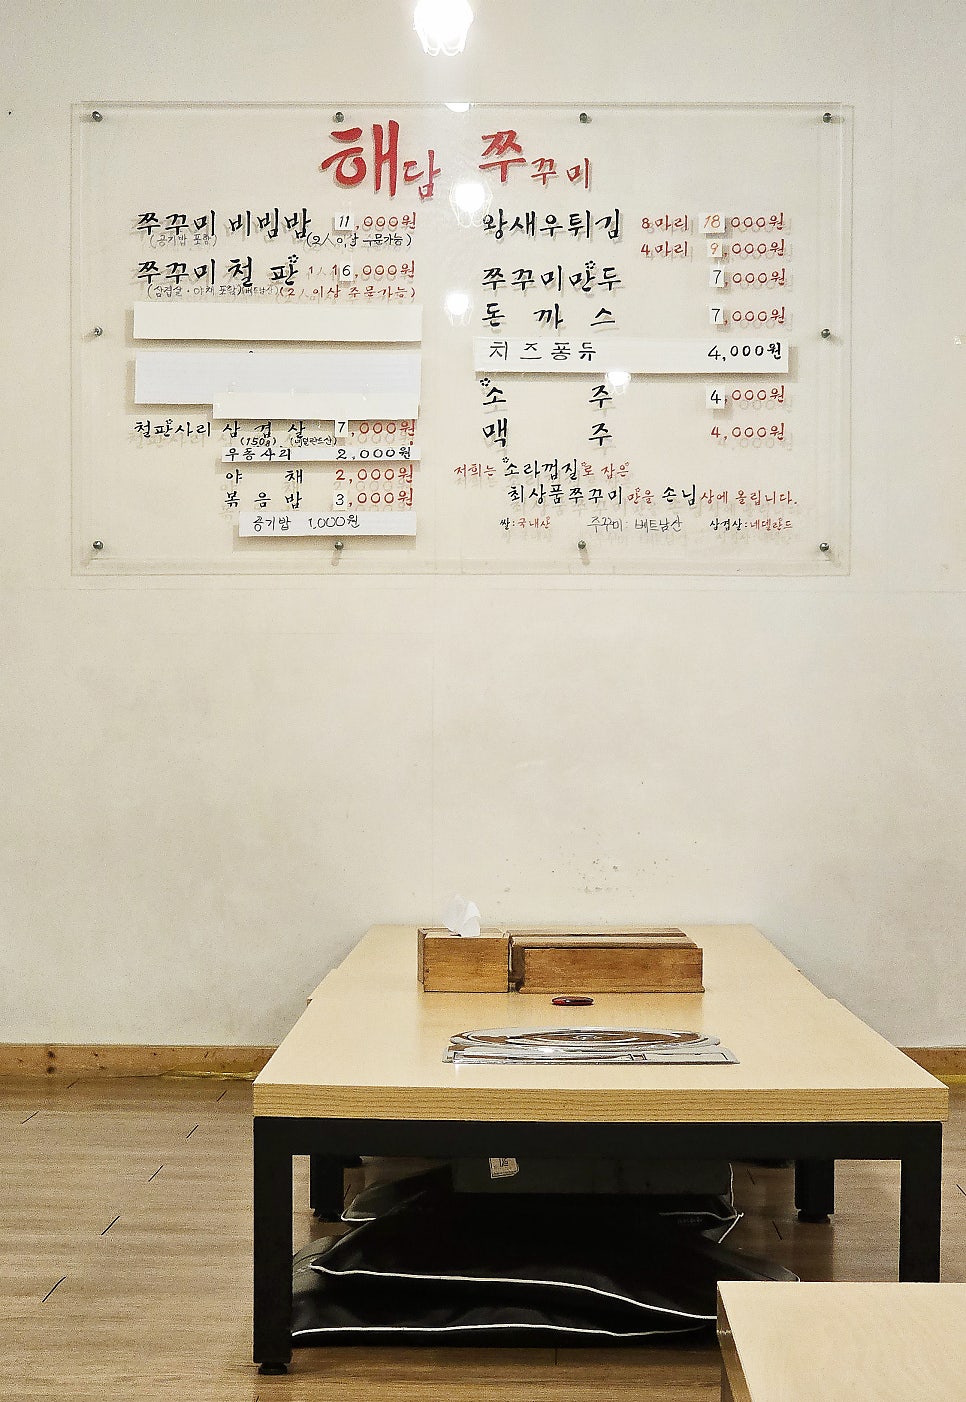 해담 쭈꾸미
쭈꾸미 비빔밥 11,000원
(공기밥 포함) (2人 이상 주문가능)
쭈꾸미철판 16,000원
(삼겹살·야채 포함)(베트남산)(2人 이상 주문가능)
철판사리 삼겹살 7,000원
(150g) (네덜란드산)
우동사리 2,000원
야채 2,000원
볶음밥 3,000원
공기밥 1,000원
왕새우튀김 8마리 18,000원
4마리 9,000원
쭈꾸미만두 7,000원
돈까스 7,000원
치즈퐁듀 4,000원
소주 4,000원
맥주 4,000원
저희는 소라껍질로 잡은
최상품쭈꾸미만을 손님상에 올립니다.
쌀:국내산 쭈꾸미: 베트남산 삼겹살:네덜란드